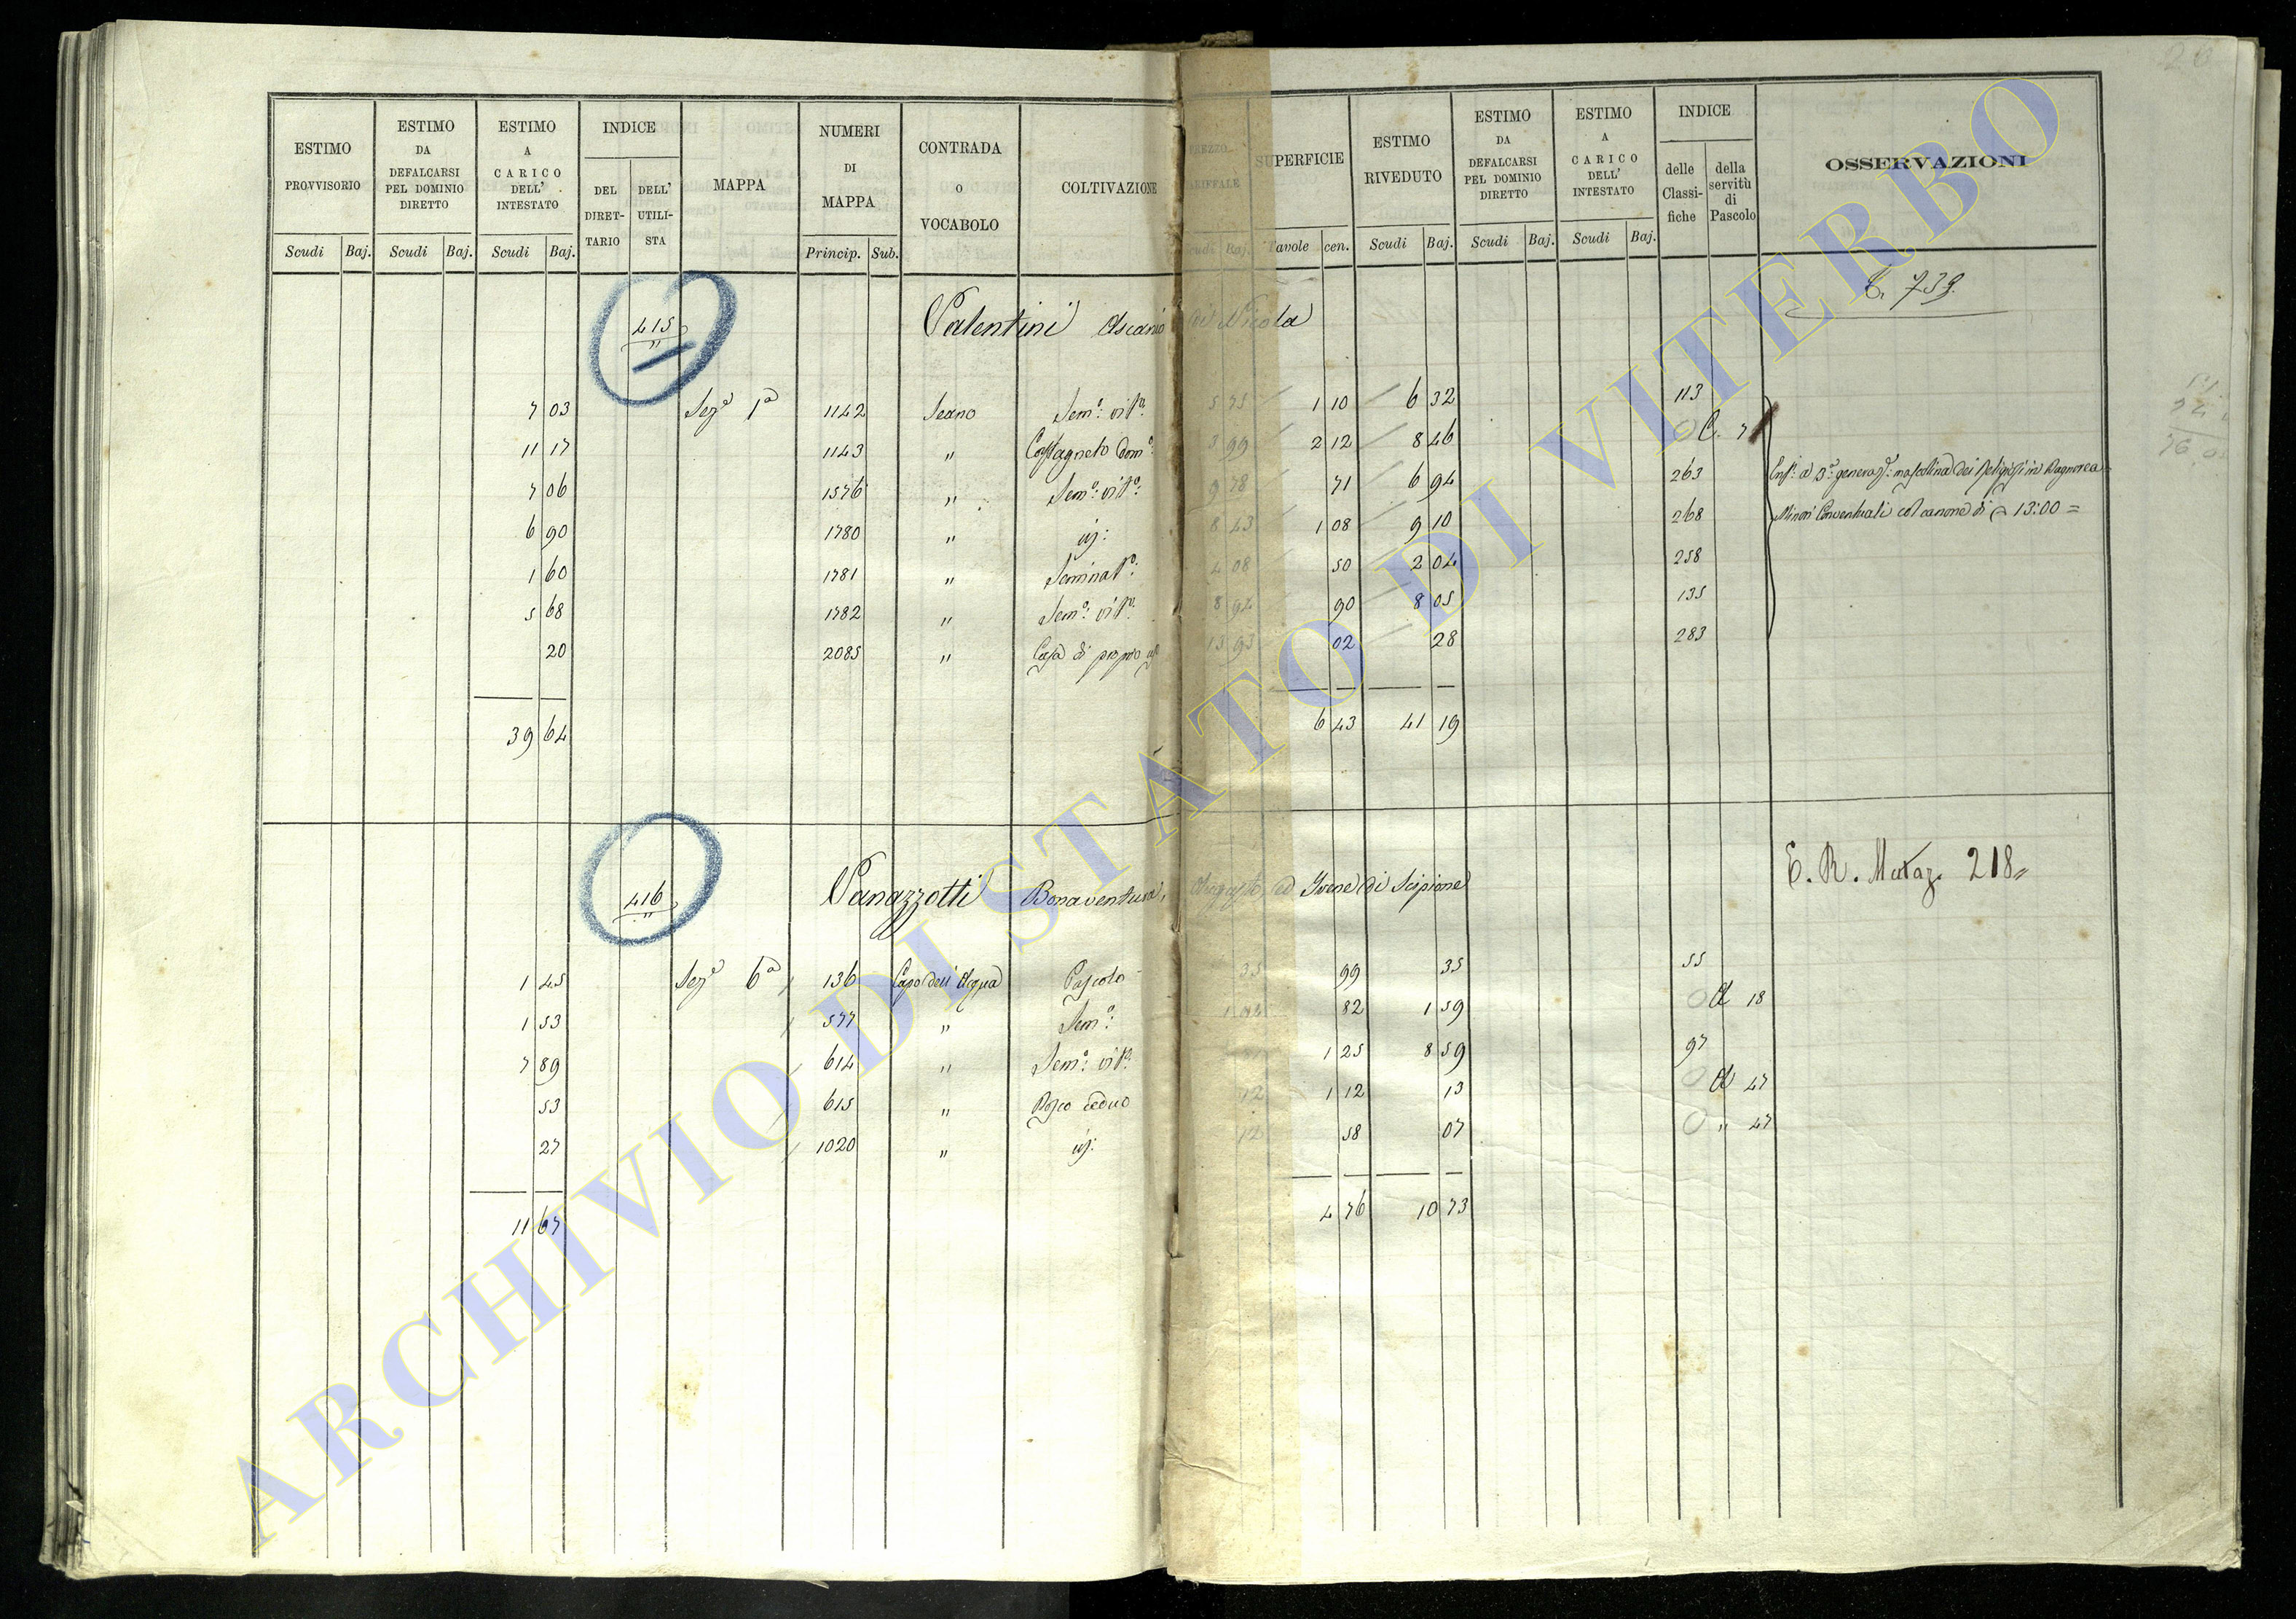 ESTIMO PROVVISORIO | ESTIMO DA DEFALCARSI PEL DOMINIO DIRETTO | ESTIMO A CARICO DELL' INTESTATO | INDICE | MAPPA | NUMERI DI MAPPA | CONTRADA O VOCABOLO | COLTIVAZIONE | PREZZO TARIFFALE | SUPERFICIE | ESTIMO RIVEDUTO | ESTIMO DA DEFALCARSI PEL DOMINIO DIRETTO | ESTIMO A CARICO DELL' INTESTATO | INDICE | OSSERVAZIONI
DEL DIRET-TARIO | DELL' UTILI-STA | delle Classi-fiche | della servitù di Pascolo
Scudi | Baj. | Scudi | Baj. | Scudi | Baj. | Princip. | Sub. | Scudi | Baj. | Tavole | cen. | Scudi | Baj. | Scudi | Baj. | Scudi | Baj.
26
415 " Valentini Ascanio di Nicola 759.
7 03 Sezᵉ 1ª 1142 Seano Semº: vitº: 5 75 1 10 6 32 113
11 17 1143 " Castagneto Domº: 3 99 2 12 8 46 C. 7
7 06 1576 " Semº: vitº: 9 78 71 6 94 263 Enfª. a 3ª generazᵉ: mascolina dei Religiosi in Bagnorea
6 90 1780 " id: 8 43 1 08 9 10 268 Minori Conventuali col canone di 13:00 =
1 60 1781 " Seminatº: 4 08 50 2 04 258
5 68 1782 " Semº: vitº: 8 94 90 8 05 135
20 2085 " Casa di proprio uso 13 93 02 28 283
39 64 6 43 41 19
416 " Panazzotti Bonaventura, Augusto, ed Irene di Scipione E. R. Mutaz. 218"
1 45 Sezᵉ 6ª 136 Capo dell' Acqua Pascolo 35 99 35 55
1 53 577 " Semº: 82 1 59 A 18
7 89 614 " Semº: vitº: 1 25 8 59 97
53 615 " Bosco ceduo 12 1 12 13 A 47
27 1020 " id: 12 58 07 " 47
11 67 4 76 10 73
ARCHIVIO DI STATO DI VITERBO